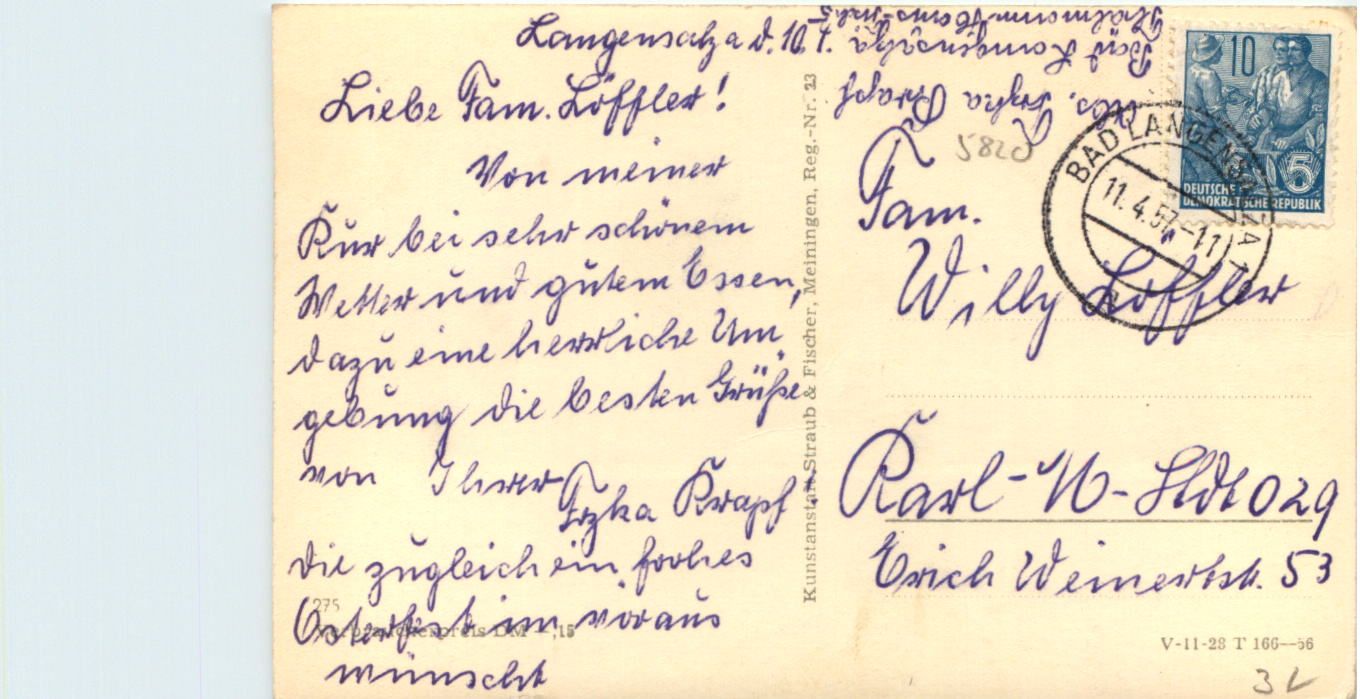 Langensalza d. 10.4.
Liebe Fam. Löffler!
Von meiner
Kur bei sehr schönem
Wetter und gutem Essen,
dazu eine herrliche Um
gebung die besten Grüße
von Ihrer
Krapf.
die zugleich ein frohes
Osterfest im voraus
wünscht
275
Verbraucherpreis DM -,15
Kunstanstalt Straub & Fischer, Meiningen, Reg.-Nr. 23
Abs. Krapf
Bad Langensalza
5820
10
5
DEUTSCHE
DEMOKRATISCHE REPUBLIK
BAD LANGENSALZA 1
11.4.57-11
Fam.
Willy Löffler
Karl-M-Stdt 029
Erich Weinertstr. 53
V-11-28 T 166--56
3